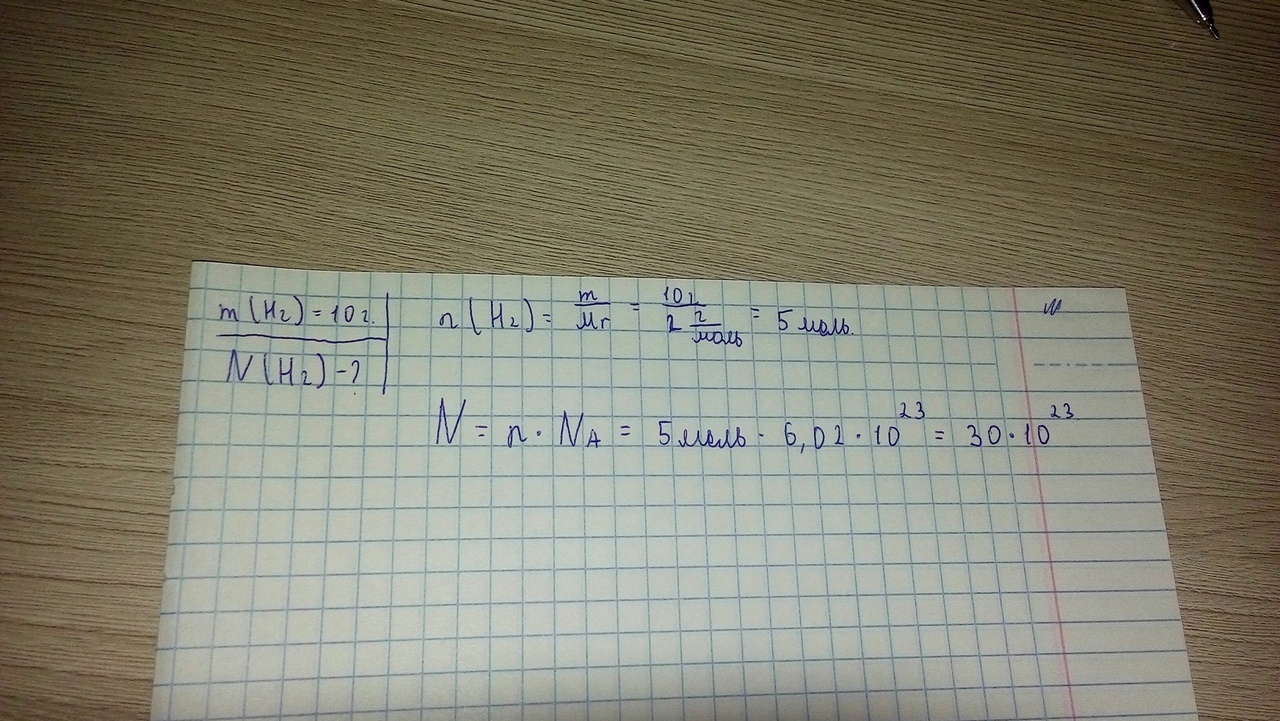 m(H₂) = 10 г.
N(H₂) - ?
n(H₂) = m/Mr = 10 г/2 г/моль = 5 моль.
N = n · Nᴀ = 5 моль · 6,02 · 10²³ = 30 · 10²³